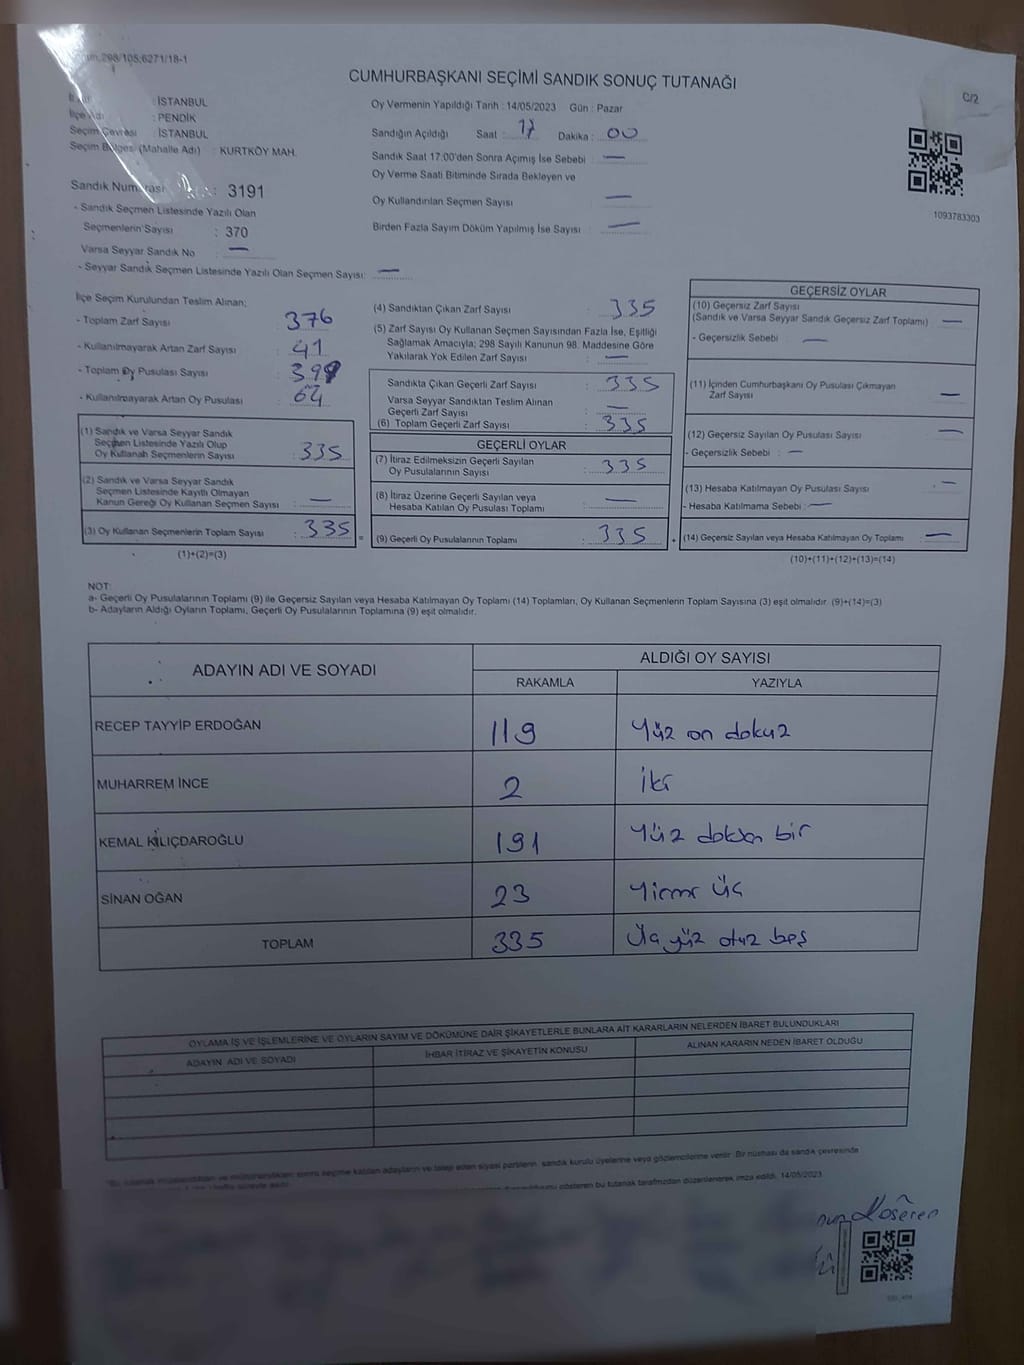 298/105,6271/18-1
CUMHURBAŞKANI SEÇİMİ SANDIK SONUÇ TUTANAĞI
C/2
: İSTANBUL
İlçe Adı : PENDİK
Seçim Çevresi : İSTANBUL
Seçim Bölgesi (Mahalle Adı) : KURTKÖY MAH.
Oy Vermenin Yapıldığı Tarih : 14/05/2023 Gün : Pazar
Sandığın Açıldığı Saat : 17 Dakika : 00
Sandık Saat 17:00'den Sonra Açımış İse Sebebi : —
Oy Verme Saati Bitiminde Sırada Bekleyen ve
Oy Kullandırılan Seçmen Sayısı : —
Birden Fazla Sayım Döküm Yapılmış İse Sayısı : —
1093783303
Sandık Numarası : 3191
- Sandık Seçmen Listesinde Yazılı Olan
Seçmenlerin Sayısı : 370
Varsa Seyyar Sandık No : —
- Seyyar Sandık Seçmen Listesinde Yazılı Olan Seçmen Sayısı: —
İlçe Seçim Kurulundan Teslim Alınan;
- Toplam Zarf Sayısı : 376
- Kullanılmayarak Artan Zarf Sayısı : 41
- Toplam Oy Pusulası Sayısı : 399
- Kullanılmayarak Artan Oy Pusulası : 64
(1) Sandık ve Varsa Seyyar Sandık
Seçmen Listesinde Yazılı Olup
Oy Kullanan Seçmenlerin Sayısı : 335
(2) Sandık ve Varsa Seyyar Sandık
Seçmen Listesinde Kayıtlı Olmayan
Kanun Gereği Oy Kullanan Seçmen Sayısı : —
(3) Oy Kullanan Seçmenlerin Toplam Sayısı : 335 =
(1)+(2)=(3)
(4) Sandıktan Çıkan Zarf Sayısı : 335
(5) Zarf Sayısı Oy Kullanan Seçmen Sayısından Fazla İse, Eşitliği
Sağlamak Amacıyla; 298 Sayılı Kanunun 98. Maddesine Göre
Yakılarak Yok Edilen Zarf Sayısı : —
Sandıkta Çıkan Geçerli Zarf Sayısı : 335
Varsa Seyyar Sandıktan Teslim Alınan
Geçerli Zarf Sayısı : —
(6) Toplam Geçerli Zarf Sayısı : 335
GEÇERLİ OYLAR
(7) İtiraz Edilmeksizin Geçerli Sayılan
Oy Pusulalarının Sayısı : 335
(8) İtiraz Üzerine Geçerli Sayılan veya
Hesaba Katılan Oy Pusulası Toplamı : —
(9) Geçerli Oy Pusulalarının Toplamı : 335 +
GEÇERSİZ OYLAR
(10) Geçersiz Zarf Sayısı
(Sandık ve Varsa Seyyar Sandık Geçersiz Zarf Toplamı) : —
- Geçersizlik Sebebi : —
(11) İçinden Cumhurbaşkanı Oy Pusulası Çıkmayan
Zarf Sayısı : —
(12) Geçersiz Sayılan Oy Pusulası Sayısı : —
- Geçersizlik Sebebi : —
(13) Hesaba Katılmayan Oy Pusulası Sayısı : —
- Hesaba Katılmama Sebebi : —
(14) Geçersiz Sayılan veya Hesaba Katılmayan Oy Toplamı : —
(10)+(11)+(12)+(13)=(14)
NOT:
a- Geçerli Oy Pusulalarının Toplamı (9) ile Geçersiz Sayılan veya Hesaba Katılmayan Oy Toplamı (14) Toplamları, Oy Kullanan Seçmenlerin Toplam Sayısına (3) eşit olmalıdır. (9)+(14)=(3)
b- Adayların Aldığı Oyların Toplamı, Geçerli Oy Pusulalarının Toplamına (9) eşit olmalıdır.
ADAYIN ADI VE SOYADI ALDIĞI OY SAYISI
RAKAMLA YAZIYLA
RECEP TAYYİP ERDOĞAN 119 Yüz on dokuz
MUHARREM İNCE 2 İki
KEMAL KILIÇDAROĞLU 191 Yüz doksan bir
SİNAN OĞAN 23 Yirmi üç
TOPLAM 335 Üç yüz otuz beş
OYLAMA İŞ VE İŞLEMLERİNE VE OYLARIN SAYIM VE DÖKÜMÜNE DAİR ŞİKAYETLERLE BUNLARA AİT KARARLARIN NELERDEN İBARET BULUNDUKLARI
ADAYIN ADI VE SOYADI İHBAR İTİRAZ VE ŞİKAYETİN KONUSU ALINAN KARARIN NEDEN İBARET OLDUĞU
sonra seçime katılan adayların ve talep eden siyasi partilerin sandık kurulu üyelerine veya gözlemcilerine verilir. Bir nüshası da sandık çevresinde
gösteren bu tutanak tarafımızdan düzenlenerek imza edildi. 14/05/2023